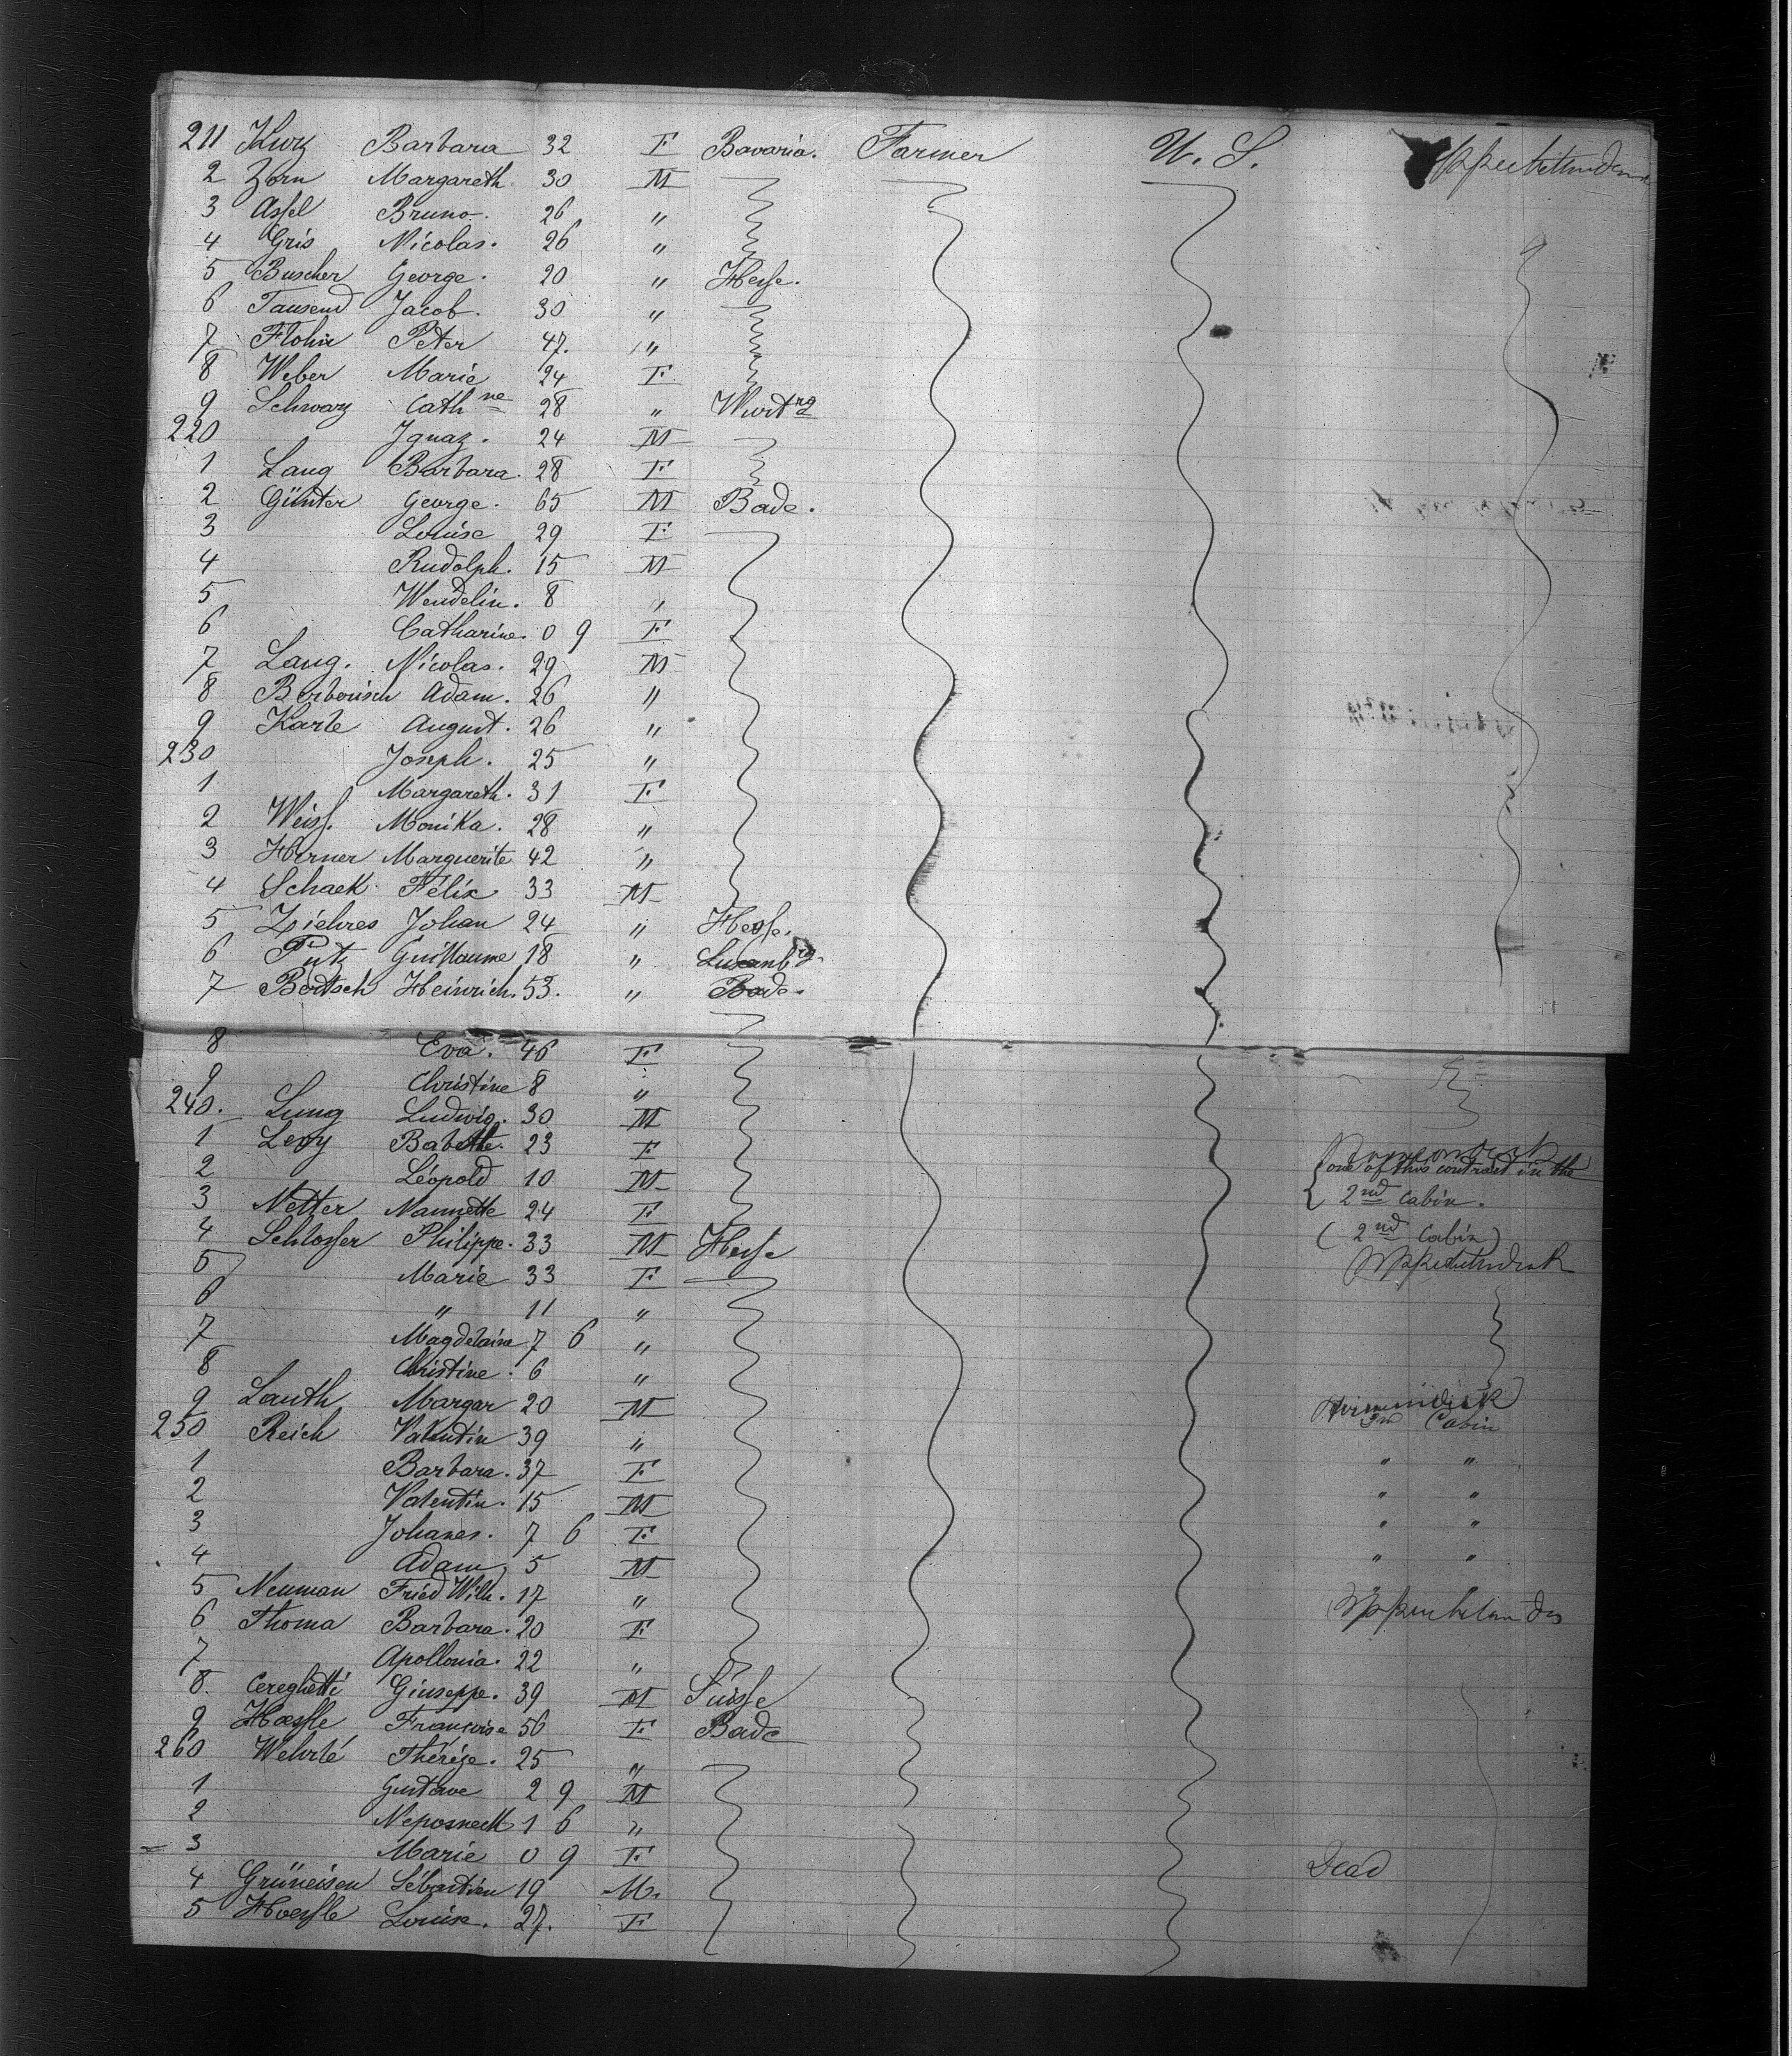 211 Kurz Barbara 32 F Bavaria. Farmer U. S. Upper between decks
2 Zorn Margareth. 30 M
3 Assel Bruno. 26 "
4 Gris Nicolas. 26 "
5 Buscher George. 20 " Hesse.
6 Tausend Jacob. 30 "
7 Peter 47. "
8 Weber Marie 24 F
9 Schwarz Cathne 28 " Wurtrg
220 Ignaz. 24 M
1 Lang Barbara. 28 F
2 Günter George. 65 M Bade.
3 Louise 29 F
4 Rudolph. 15 M
5 Wendelin. 8 "
6 Catharine. 0 9 F
7 Lang. Nicolas. 29 M
8 Adam. 26 "
9 Karle August. 26 "
230 Joseph. 25 "
1 Margareth. 31 F
2 Weiss. Monika. 28 "
3 Herner Marguerite 42 "
4 Schaek Félix 33 M
5 Ziehres Johan 24 " Hesse.
6 Putz Guillaume 18 " Luxembrg.
7 Bertsch Heinrich. 53. " Bade.
8 Eva. 46 F
9 Christine 8 "
240. Lung Ludwig. 30 M
1 Levy Babette. 23 F
2 Léopold 10 M one of this contract in the
3 Netter Nannette 24 F 2nd Cabin.
4 Schlosser Philippe. 33 M Hesse (2nd Cabin)
5 Marie 33 F
6 " 11 "
7 Magdelaine 7 6 "
8 Christine. 6 "
9 Lauth Margar 20 M
250 Reich Valentin 39 " Cabin
1 Barbara. 37 F " "
2 Valentin. 15 M " "
3 Johanes. 7 6 F " "
4 Adam 5 M " "
5 Neuman Fried Wilh. 17 "
6 Thoma Barbara. 20 F
7 Apollonia. 22 "
8. Cereghetti Giuseppe. 39 M Suisse
9 Hoessle Françoise 56 F Bade
260 Wehrlé Thérèze. 25 "
1 Gustave 2 9 M
2 1 6 "
3 Marie 0 9 F Dead
4 Grüneisen Sébastien 19 M.
5 Hoessle Louise. 27. F